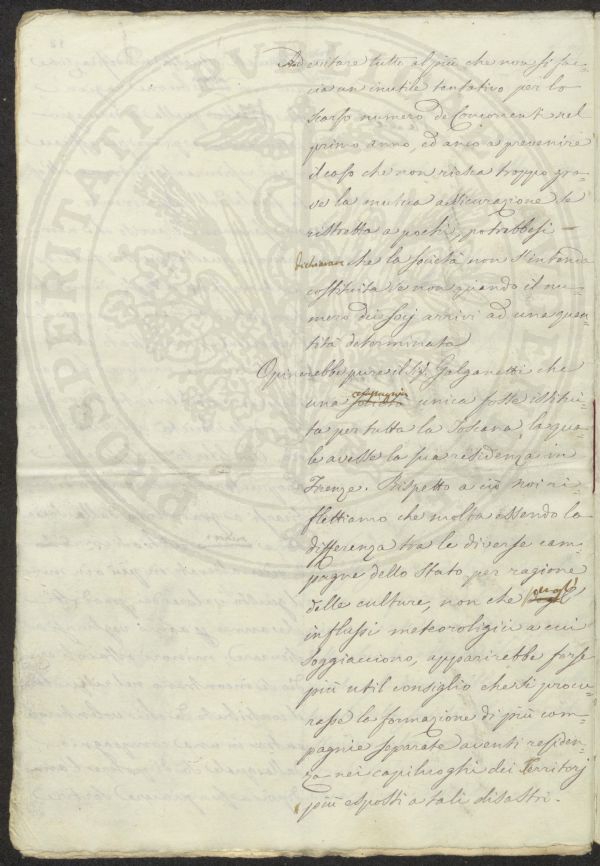 PROSPERITATI PUBLICAE
contare tutto al più che non si fac-
cia un inutile tentativo per lo
scarso numero de Concorrenti nel
primo anno, ed anco a prevenire
il caso che non riesca troppo gra-
ve la mutua assicurazione se
ristretta a pochi, potrebbesi —
dichiarare che la società non s'intenda
costituita se non quando il nu-
mero dei socj arrivi ad una quan-
tità determinata
Opinerebbe pure il Sig. Galganetti che
compagnia
una società unica fosse istitui-
ta per tutta la Toscana la qua-
le avesse la sua residenza in
Firenze. Rispetto a ciò noi ri-
flettiamo che molta essendo la
differenza tra le diverse cam-
pagne dello Stato per ragione
delle culture, non che
influssi meteorologici a cui
soggiacciono, apparirebbe forse
più util consiglio che si procu-
rasse la formazione di più com-
pagnie separate aventi residen-
za nei capiluoghi dei Territorj
più esposti a tali disastri.